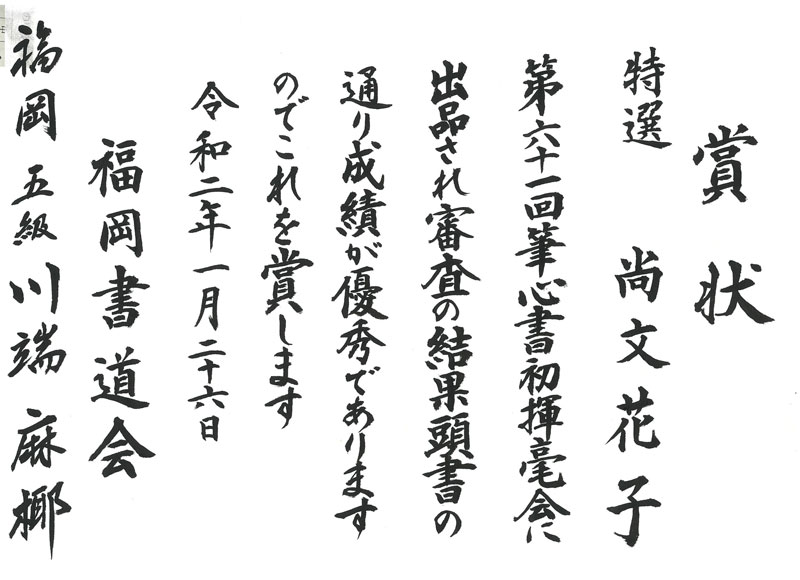 賞状
特選 尚文花子
第六十一回筆心書初揮毫会に
出品され審査の結果頭書の
通り成績が優秀であります
のでこれを賞します
令和二年一月二十六日
福岡書道会
福岡 五級 川端麻椰